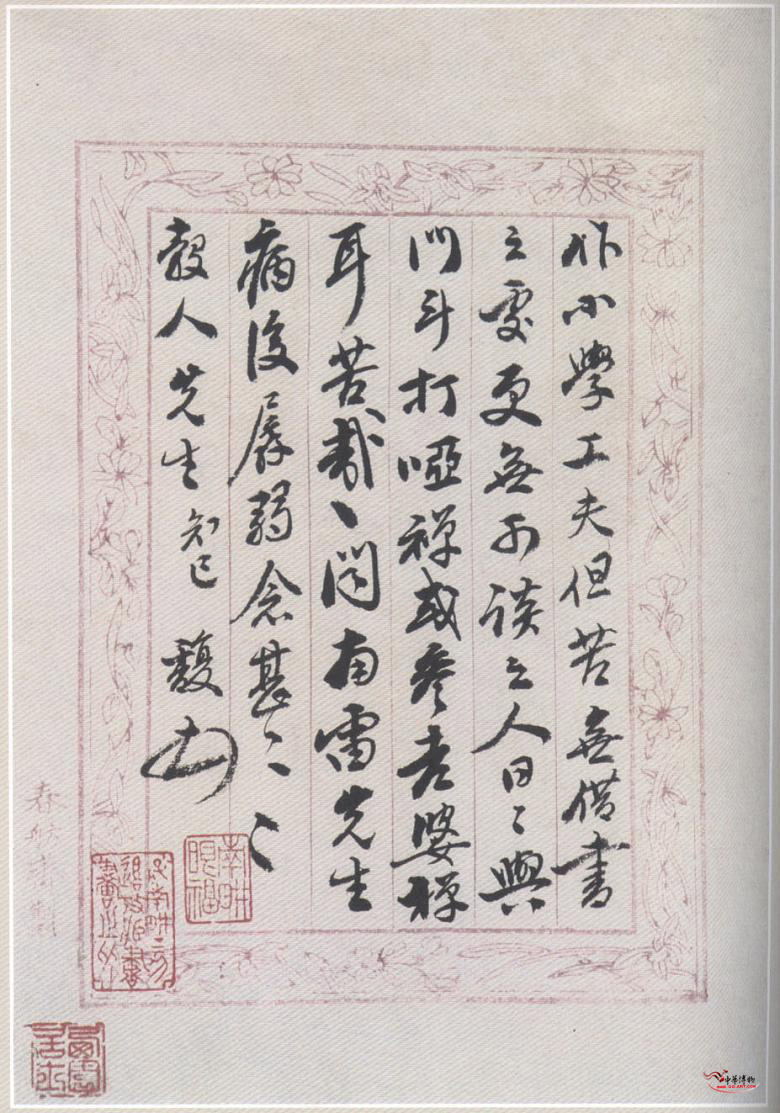 作小學工夫但苦無借書
之處更無可談之人日〻與
門斗打啞禪或參老婆禪
耳苦哉〻聞南雷先生
病後孱弱念甚〻〻
穀人先生知己 馥
春舫
中華博物